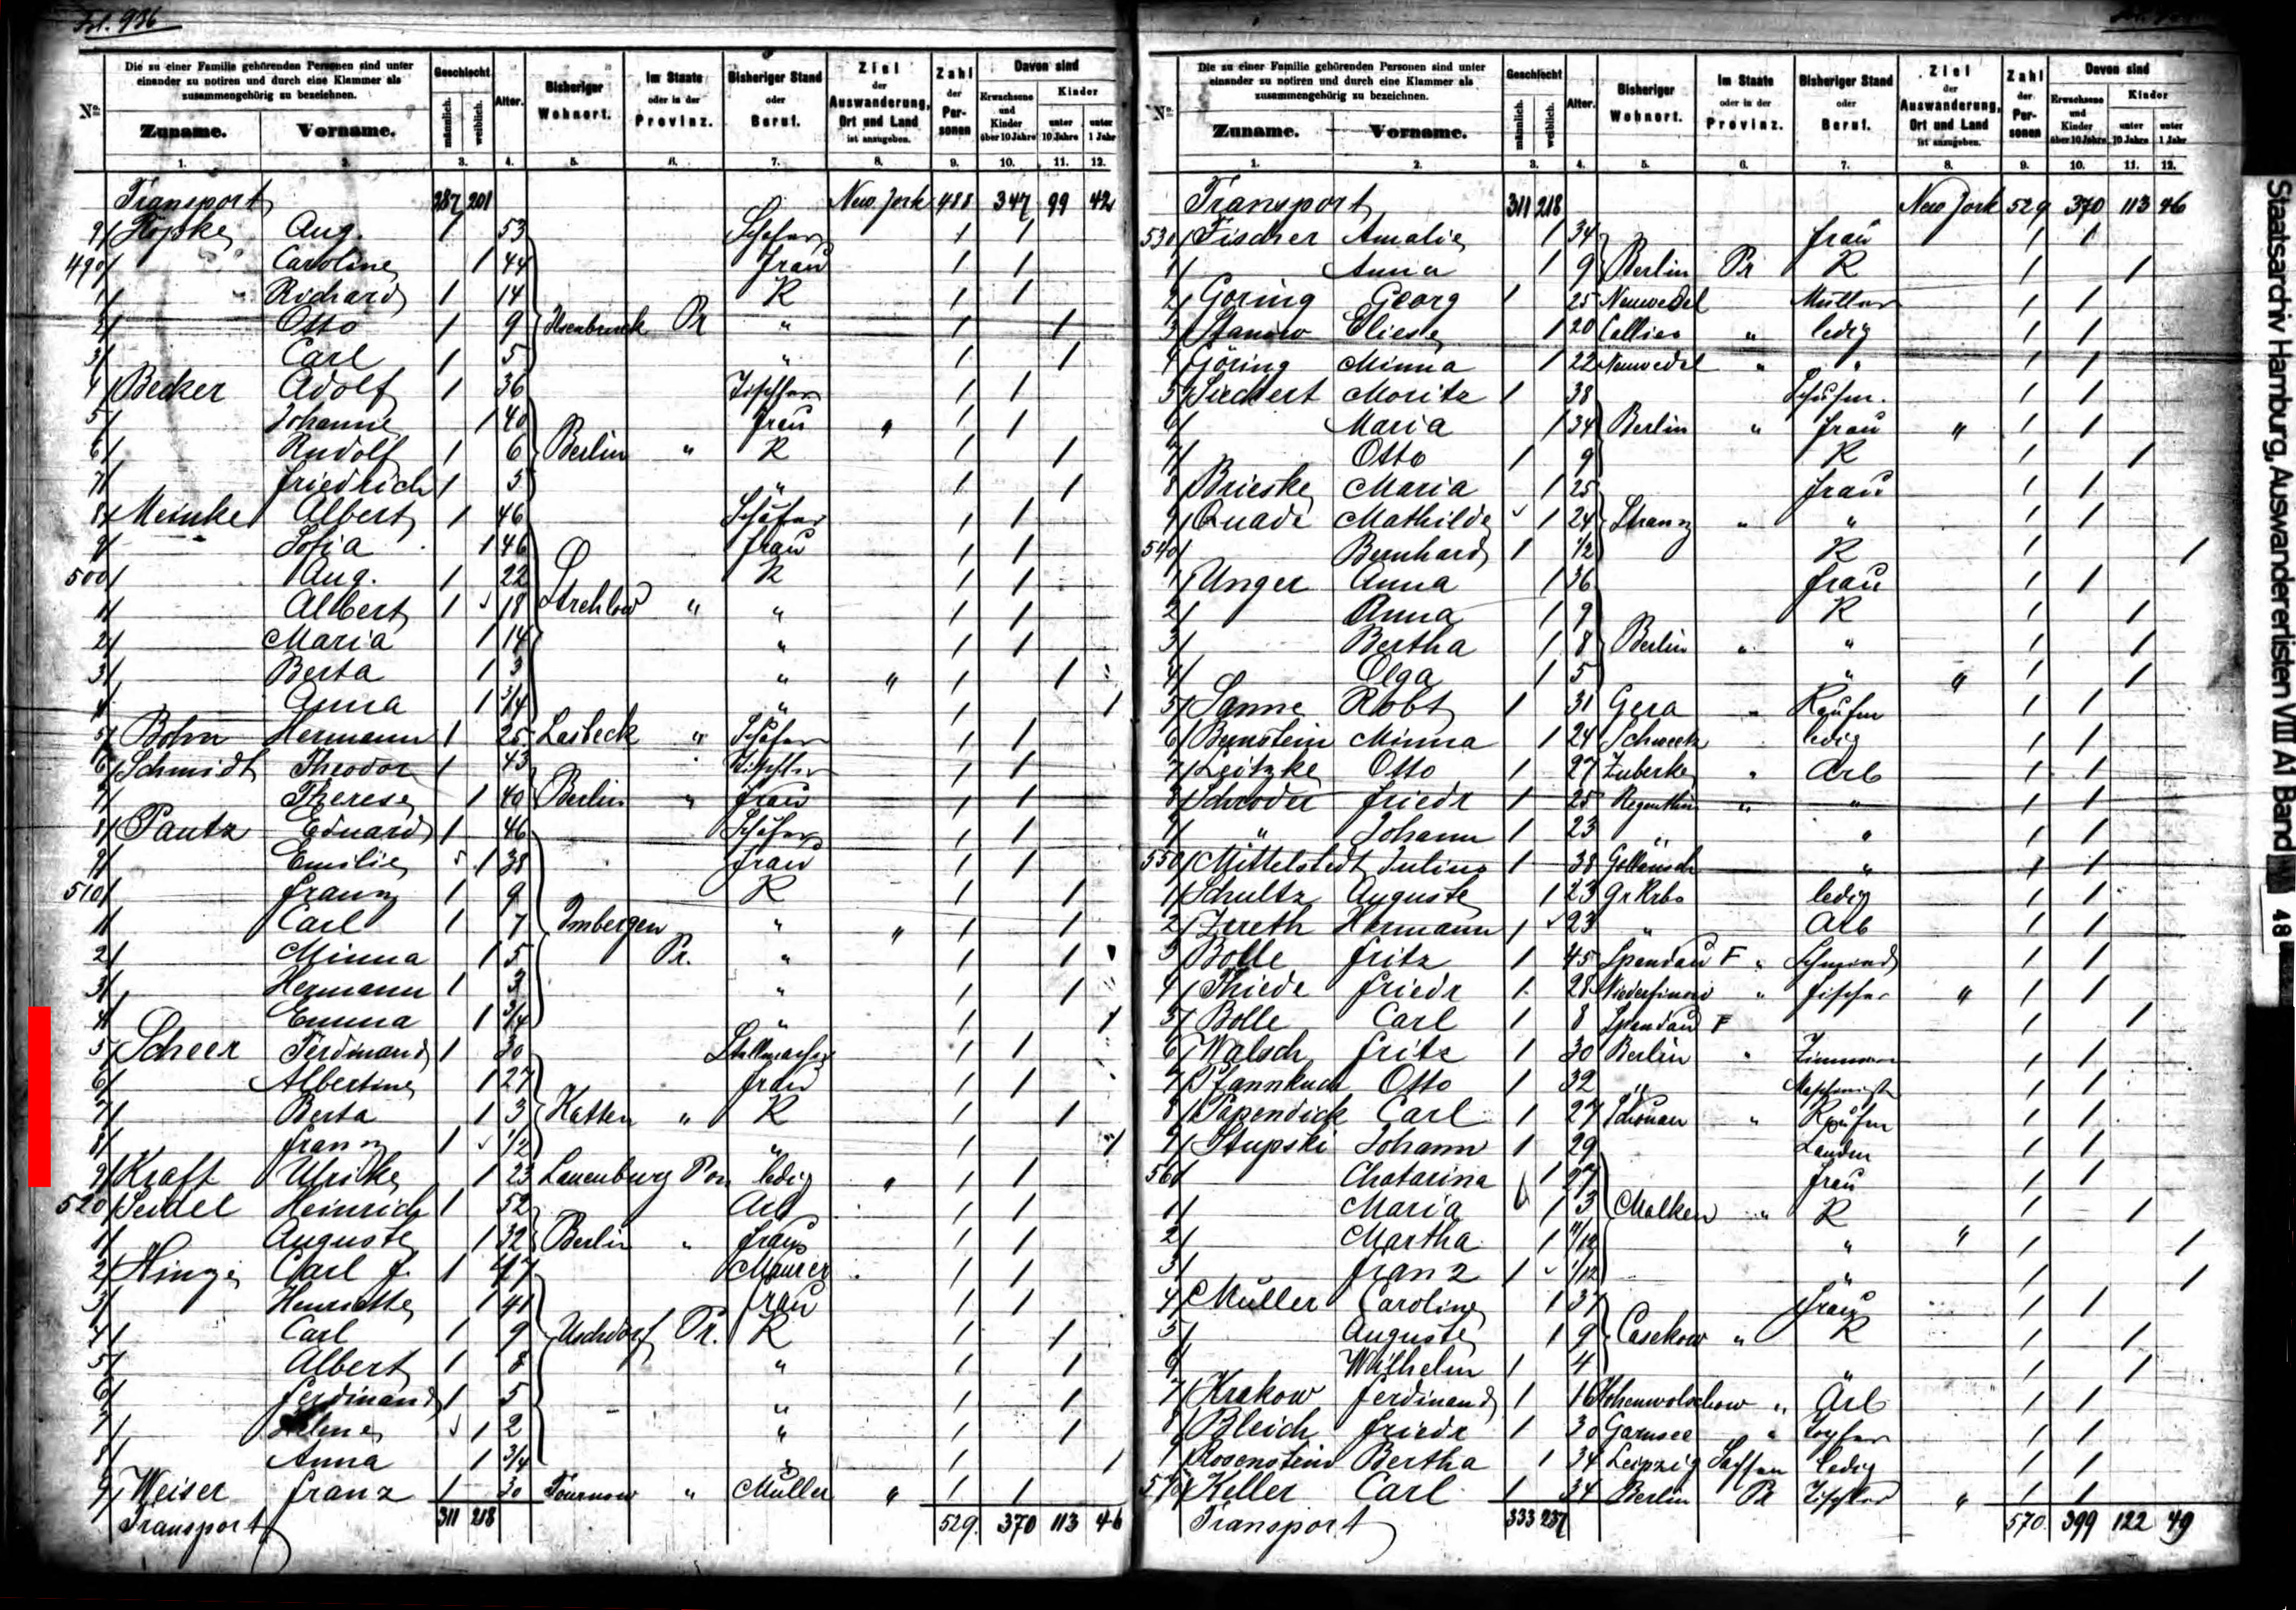 Fol. 936
Die zu einer Familie gehörenden Personen sind unter einander zu notiren und durch eine Klammer als zusammengehörig zu bezeichnen.
No. Zuname. Vorname. Geschlecht männlich. weiblich. Alter. Bisheriger Wohnort. Im Staate oder in der Provinz. Bisheriger Stand oder Beruf. Ziel der Auswanderung, Ort und Land ist anzugeben. Zahl der Personen Davon sind Erwachsene und Kinder über 10 Jahre Kinder unter 10 Jahre unter 1 Jahr
1. 2. 3. 4. 5. 6. 7. 8. 9. 10. 11. 12.
Transport 287 201 New York 488 347 99 42
9 Aug. 1 53 1 1
490 Caroline 1 44 Frau 1 1
1 " Richard 1 14 K 1 1
2 Otto 1 9 Pr " 1 1
3 Carl 1 5 " 1 1
4 Becker Adolf 1 36 Tischler 1 1
5 Johanne 1 40 Frau " 1 1
6 Rudolf 1 6 Berlin " K 1 1
7 Friedrich 1 5 " 1 1
8 Meinke Albert 1 46 Schäfer 1 1
9 Sofia 1 46 Frau 1 1
500 Aug. 1 22 K 1 1
1 Albert 1 18 Strehlow " " 1 1
2 Maria 1 14 " 1 1
3 Berta 1 3 " " 1 1
4 Anna 1 3/4 " 1 1
5 Bohn Hermann 1 25 Lasbeck " Schäfer 1 1
6 Schmidt Theodor 1 43 Tischler 1 1
7 Therese 1 40 Berlin " Frau 1 1
8 Pautz Eduard 1 46 Schäfer 1 1
9 Emilie 1 38 Frau 1 1
510 Franz 1 9 K 1 1
1 Carl 1 7 Imbergen " " 1 1
2 Minna 1 5 Pr. " 1 1
3 Hermann 1 3 " 1 1
4 Emma 1 3/4 " 1 1
5 Scheer Ferdinand 1 30 Stellmacher 1 1
6 Albertine 1 27 Frau 1 1
7 Berta 1 3 Hatten " K 1 1
8 Franz 1 1/2 " 1 1
9 Kraft Ulrike 1 23 Lauenburg Pom ledig " 1 1
520 Seidel Heinrich 1 52 Arb 1 1
1 Auguste 1 32 Berlin " Frau 1 1
2 Hinze Carl F. 1 47 Maurer 1 1
3 Henriette 1 41 Frau 1 1
4 Carl 1 9 Uschdorf Pr. K 1 1
5 Albert 1 8 " 1 1
6 Ferdinand 1 5 " 1 1
7 1 2 " 1 1
8 Anna 1 3/4 " 1 1
9 Weiser Franz 1 30 Tournow " Müller " 1 1
Transport 311 218 529 370 113 46
Die zu einer Familie gehörenden Personen sind unter einander zu notiren und durch eine Klammer als zusammengehörig zu bezeichnen.
No. Zuname. Vorname. Geschlecht männlich. weiblich. Alter. Bisheriger Wohnort. Im Staate oder in der Provinz. Bisheriger Stand oder Beruf. Ziel der Auswanderung, Ort und Land ist anzugeben. Zahl der Personen Davon sind Erwachsene und Kinder über 10 Jahre Kinder unter 10 Jahre unter 1 Jahr
1. 2. 3. 4. 5. 6. 7. 8. 9. 10. 11. 12.
Transport 311 218 New York 529 370 113 46
530 Fischer Amalie 1 34 Frau 1 1
1 Anna 1 9 Berlin Pr K 1 1
2 Göring Georg 1 25 Neuwedel Müller 1 1
3 Stanow Eliese 1 20 Callies " ledig 1 1
4 Göring Minna 1 22 Neuwedel " " 1 1
5 Siechert Moritz 1 38 Schuhm. 1 1
6 Maria 1 34 Berlin " Frau " 1 1
7 Otto 1 9 K 1 1
8 Brieske Maria 1 25 Frau 1 1
9 Quade Mathilde 1 24 Stranz " " 1 1
540 Bernhard 1 1/2 K 1 1
1 Unger Anna 1 36 Frau 1 1
2 Anna 1 9 K 1 1
3 Bertha 1 8 Berlin " " 1 1
4 Olga 1 5 " " 1 1
5 Sanne Robt 1 31 Gera " Kaufm 1 1
6 Bernstein Minna 1 24 Schwetz ledig 1 1
7 Leitzke Otto 1 27 Zuberke " Arb 1 1
8 Schröder Friedr 1 25 Regenthin " " 1 1
9 " Johann 1 23 " " 1 1
550 Mittelstedt Julius 1 38 " 1 1
1 Schultz Auguste 1 23 Gr Krbs ledig 1 1
2 Zereth Hermann 1 23 " Arb 1 1
3 Bolle Fritz 1 45 Spandau F " Schmied 1 1
4 Thiede Friedr 1 28 Niederfinow " Fischer " 1 1
5 Bolle Carl 1 8 Spandau F 1 1
6 Walsch Fritz 1 30 Berlin " Zimmerm 1 1
7 Pfannkuch Otto 1 32 " Maschinist 1 1
8 Papendick Carl 1 27 " Kaufm 1 1
9 Stupski Johann 1 29 Landm 1 1
560 Chatarina 1 27 Frau 1 1
1 Maria 1 3 Malken " K 1 1
2 Martha 1 11/12 " " 1 1
3 Franz 1 1/12 " 1 1
4 Müller Caroline 1 37 Frau 1 1
5 Auguste 1 9 Casekow " K 1 1
6 Wilhelm 1 4 " 1 1
7 Krakow Ferdinand 1 16 Hohenwolschow " Arb 1 1
8 Bleich Friedr 1 30 Garnsee " Töpfer 1 1
9 Rosenstein Bertha 1 34 Leipzig Sachsen ledig 1 1
570 Keller Carl 1 34 Berlin Pr Tischler " 1 1
Transport 333 237 570 399 122 49
Staatsarchiv Hamburg, Auswandererlisten VIII A1 Band 48